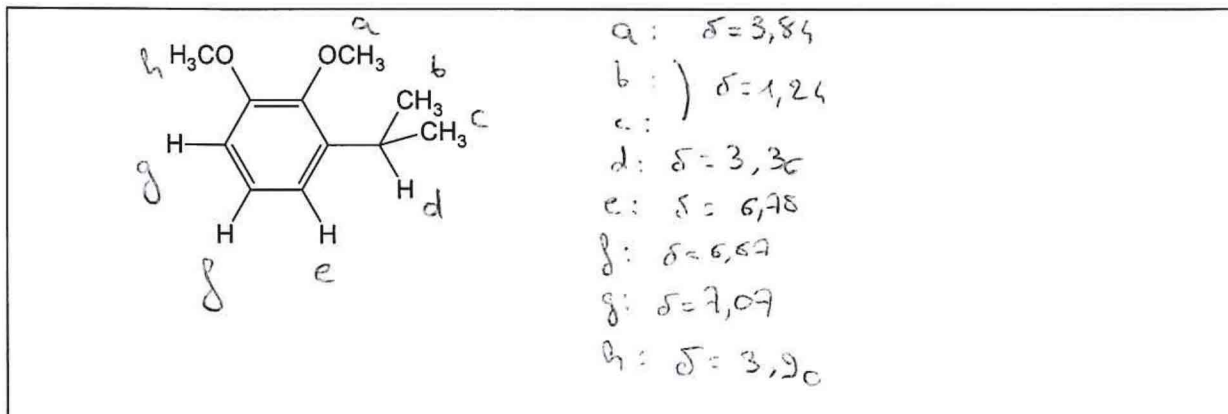 a
h H₃CO OCH₃ b
CH₃
CH₃ c
H
g H d
H H
f e
a: δ=3,84
b: ) δ=1,24
c:
d: δ=3,36
e: δ=6,78
f: δ=6,87
g: δ=7,07
h: δ=3,90